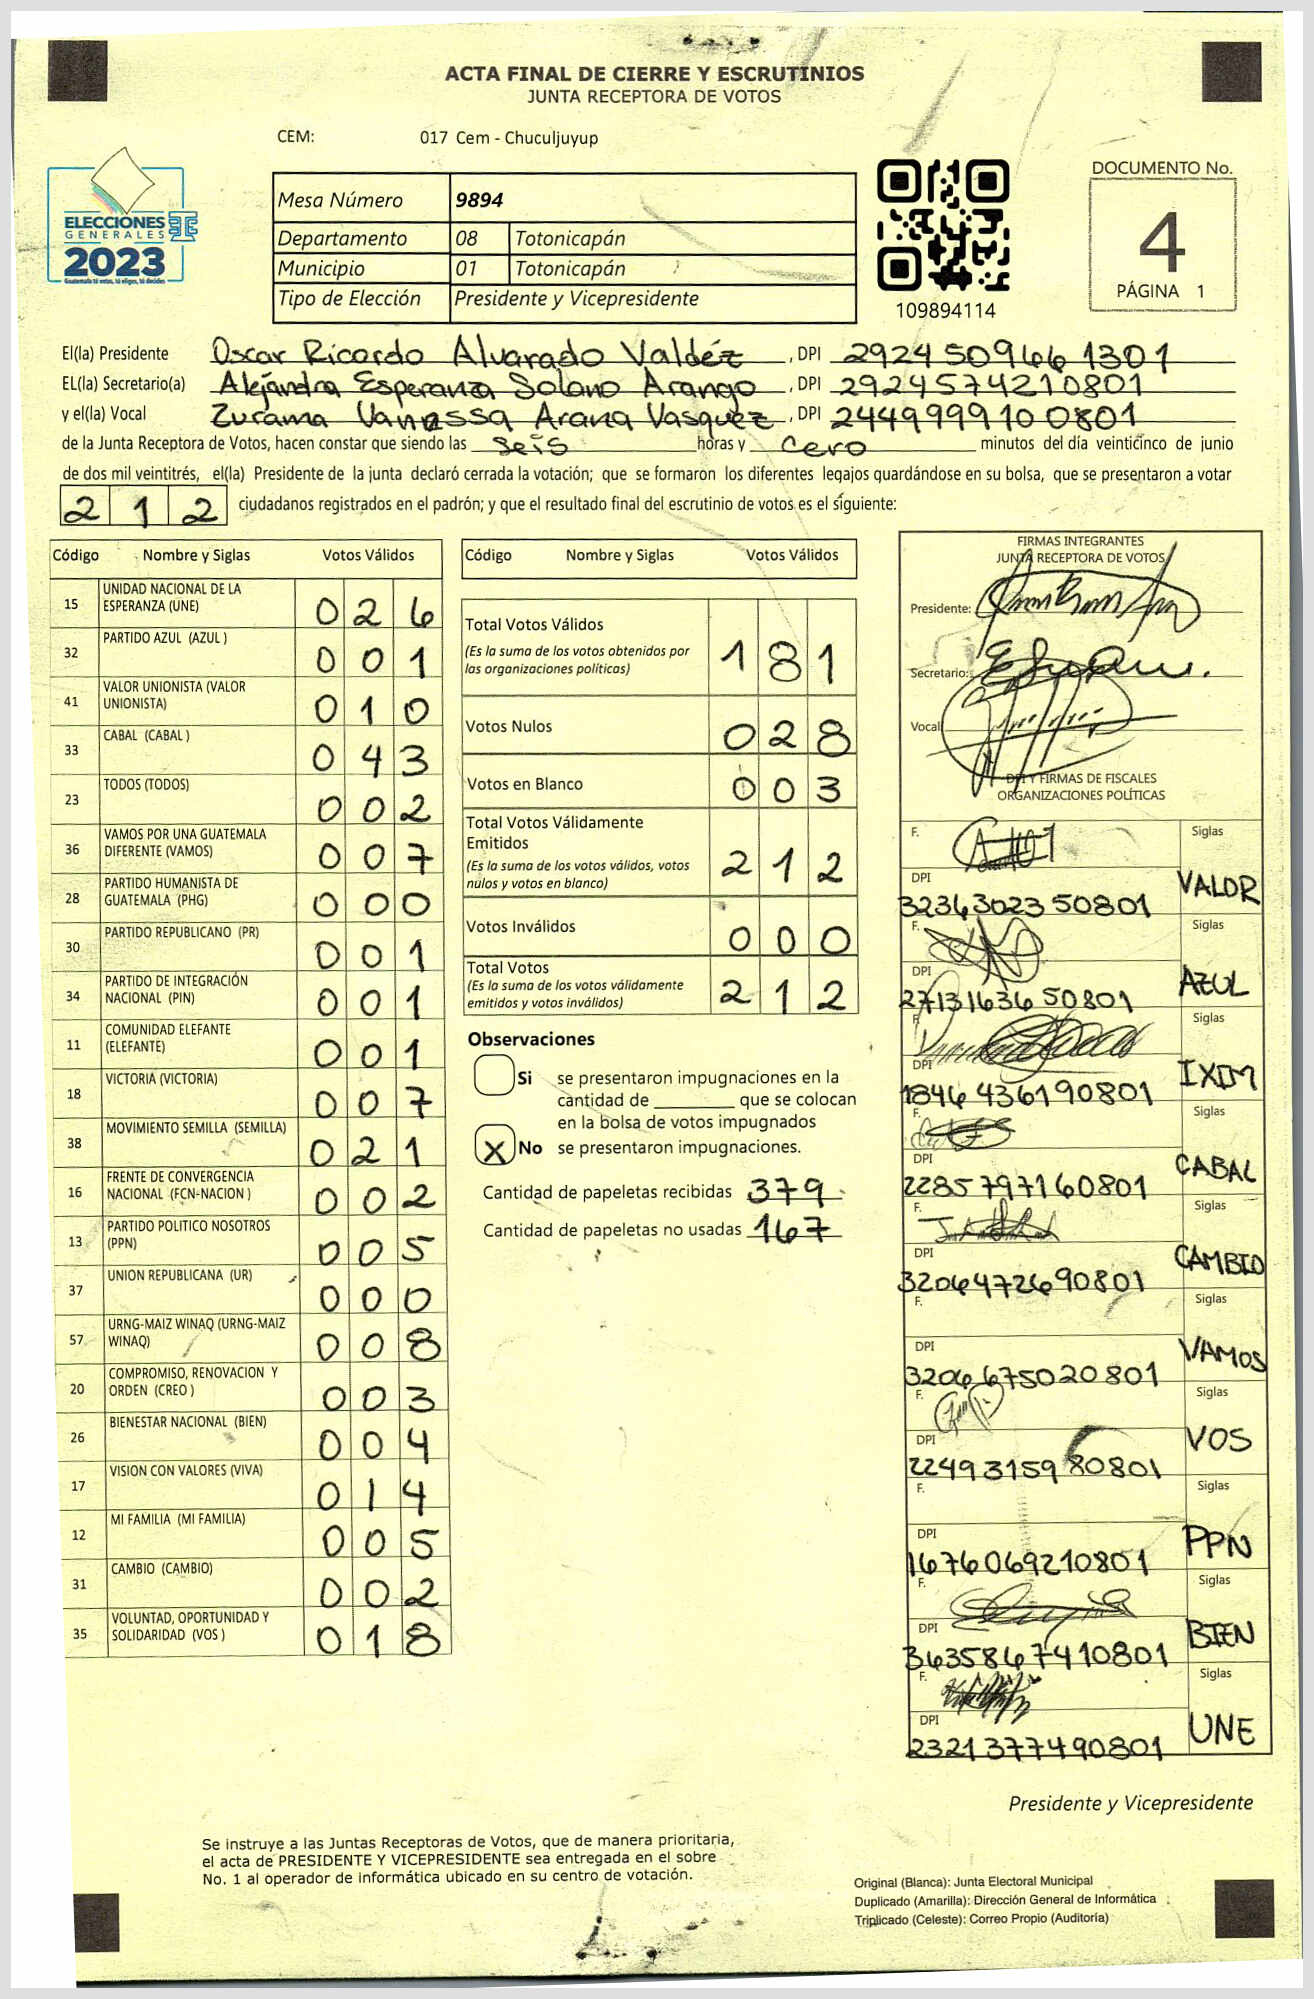 ACTA FINAL DE CIERRE Y ESCRUTINIOS
JUNTA RECEPTORA DE VOTOS
CEM: 017 Cem - Chuculjuyup
ELECCIONES
GENERALES
2023
Guatemala tú votas, tú eliges, tú decides
Mesa Número 9894
Departamento 08 Totonicapán
Municipio 01 Totonicapán
Tipo de Elección Presidente y Vicepresidente
109894114
DOCUMENTO No.
4
PÁGINA 1
El(la) Presidente Oscar Ricardo Alvarado Valdéz , DPI 2924509461301
EL(la) Secretario(a) Alejandra Esperanza Solano Arango , DPI 2924574210801
y el(la) Vocal Zurama Vanessa Arana Vasquez , DPI 2449999100801
de la Junta Receptora de Votos, hacen constar que siendo las seis horas y cero minutos del día veinticinco de junio
de dos mil veintitrés, el(la) Presidente de la junta declaró cerrada la votación; que se formaron los diferentes legajos guardándose en su bolsa, que se presentaron a votar
212 ciudadanos registrados en el padrón; y que el resultado final del escrutinio de votos es el siguiente:
Código Nombre y Siglas Votos Válidos
15 UNIDAD NACIONAL DE LA ESPERANZA (UNE) 026
32 PARTIDO AZUL (AZUL ) 001
41 VALOR UNIONISTA (VALOR UNIONISTA) 010
33 CABAL (CABAL ) 043
23 TODOS (TODOS) 002
36 VAMOS POR UNA GUATEMALA DIFERENTE (VAMOS) 007
28 PARTIDO HUMANISTA DE GUATEMALA (PHG) 000
30 PARTIDO REPUBLICANO (PR) 001
34 PARTIDO DE INTEGRACIÓN NACIONAL (PIN) 001
11 COMUNIDAD ELEFANTE (ELEFANTE) 001
18 VICTORIA (VICTORIA) 007
38 MOVIMIENTO SEMILLA (SEMILLA) 021
16 FRENTE DE CONVERGENCIA NACIONAL (FCN-NACION ) 002
13 PARTIDO POLITICO NOSOTROS (PPN) 005
37 UNION REPUBLICANA (UR) 000
57 URNG-MAIZ WINAQ (URNG-MAIZ WINAQ) 008
20 COMPROMISO, RENOVACION Y ORDEN (CREO ) 003
26 BIENESTAR NACIONAL (BIEN) 004
17 VISION CON VALORES (VIVA) 014
12 MI FAMILIA (MI FAMILIA) 005
31 CAMBIO (CAMBIO) 002
35 VOLUNTAD, OPORTUNIDAD Y SOLIDARIDAD (VOS ) 018
Código Nombre y Siglas Votos Válidos
Total Votos Válidos 181
(Es la suma de los votos obtenidos por
las organizaciones políticas)
Votos Nulos 028
Votos en Blanco 003
Total Votos Válidamente
Emitidos 212
(Es la suma de los votos válidos, votos
nulos y votos en blanco)
Votos Inválidos 000
Total Votos 212
(Es la suma de los votos válidamente
emitidos y votos inválidos)
Observaciones
Si se presentaron impugnaciones en la
cantidad de ________ que se colocan
en la bolsa de votos impugnados
X No se presentaron impugnaciones.
Cantidad de papeletas recibidas 379
Cantidad de papeletas no usadas 167
FIRMAS INTEGRANTES
JUNTA RECEPTORA DE VOTOS
Presidente:
Secretario:
Vocal
DPI Y FIRMAS DE FISCALES
ORGANIZACIONES POLÍTICAS
F. Siglas
DPI VALOR
3234302350801
F. Siglas
DPI AZUL
2713163650801
F. Siglas
DPI IXIM
1846436190801
F. Siglas
DPI CABAL
2285797160801
F. Siglas
DPI CAMBIO
3206472690801
F. Siglas
DPI VAMOS
3206675020801
F. Siglas
DPI VOS
2249315980801
F. Siglas
DPI PPN
1676069210801
F. Siglas
DPI BIEN
3635867410801
F. Siglas
DPI UNE
2321377490801
Presidente y Vicepresidente
Se instruye a las Juntas Receptoras de Votos, que de manera prioritaria,
el acta de PRESIDENTE Y VICEPRESIDENTE sea entregada en el sobre
No. 1 al operador de informática ubicado en su centro de votación.
Original (Blanca): Junta Electoral Municipal
Duplicado (Amarilla): Dirección General de Informática
Triplicado (Celeste): Correo Propio (Auditoría)